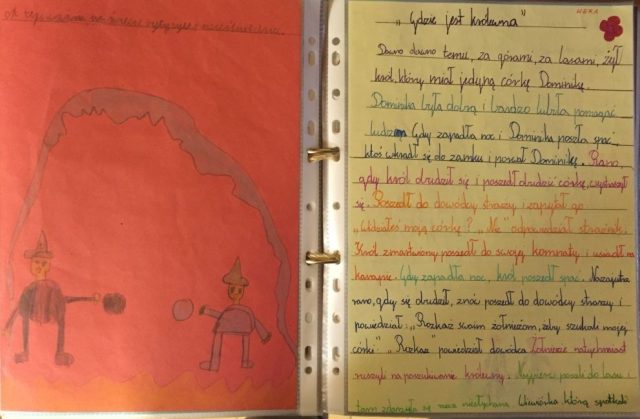 WERA
„Gdzie jest królewna"
Dawno dawno temu, za górami, za lasami, żył
król, który miał jedyną córkę Dominikę.
Dominika była dobrą i bardzo lubiła pomagać
ludziom. Gdy zapadła noc i Dominika poszła spać,
ktoś wkradł się do zamku i porwał Dominikę. Rano,
gdy król obudził się i poszedł obudzić córkę, wystraszył
się. Poszedł do dowódcy straży i zapytał go
„Widziałeś moją córkę? „Nie" odpowiedział strażnik.
Król zmartwiony poszedł do swojej komnaty i usiadł na
kanapie. Gdy zapadła noc, król poszedł spać. Nazajutrz
rano, gdy się obudził, znów poszedł do dowódcy straży i
powiedział: „Rozkaż swoim żołnieżom, żeby szukali mojej
córki". „Rozkaz" powiedział dowódca. Żołnieże natychmiast
ruszyli na poszukiwanie królewny. Najpierw poszli do lasu i
tam zdarzyła się rzecz niesłychana. Wiewiórka którą spotkali